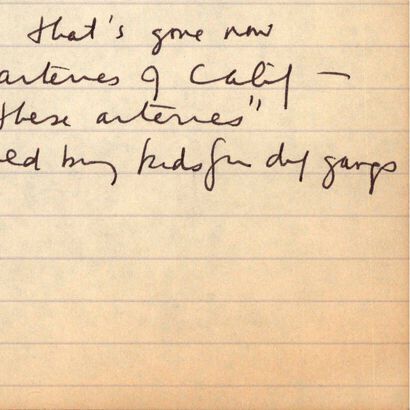 that's gone now
arteries of Calif —
these arteries"
ed kids gangs